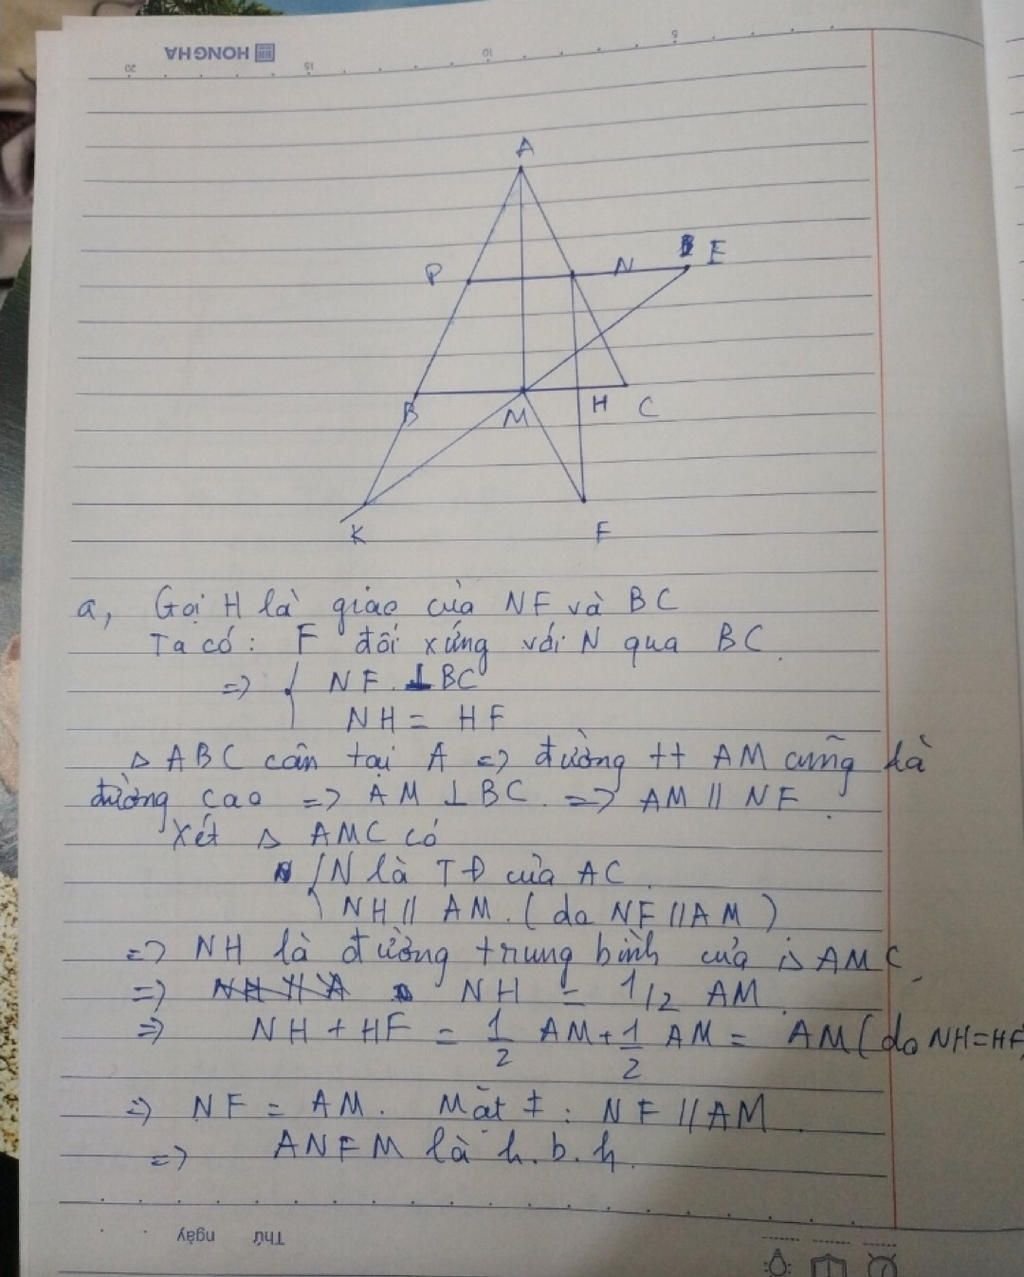 HONG HA
20 15 10 5
A
P N E
B M H C
K F
a, Gọi H là giao của NF và BC
Ta có: F đối xứng với N qua BC.
=> { NF ⊥ BC
NH = HF
Δ ABC cân tại A => đường tt AM cũng là
đường cao => AM ⊥ BC. => AM // NF.
Xét Δ AMC có
{ N là TĐ của AC.
NH // AM. (do NF // AM)
=> NH là đường trung bình của Δ AMC.
=> NH = 1/2 AM.
=> NH + HF = 1/2 AM + 1/2 AM = AM (do NH = HF)
=> NF = AM. Mặt ‡: NF // AM.
=> ANFM là h.b.h.
Thứ ngày